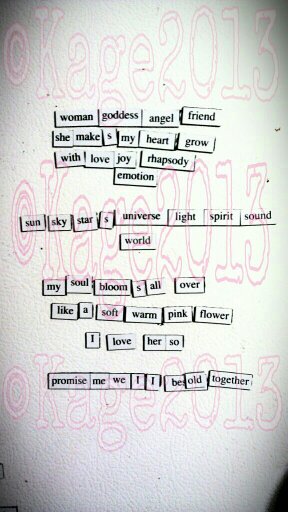 ©Kage2013
woman goddess angel friend
she make s my heart grow
with love joy rhapsody
emotion
©Kage2013
sun sky star s universe light spirit sound
world
my soul bloom s all over
like a soft warm pink flower
I love her so
©Kage2013
promise me we I I be old together